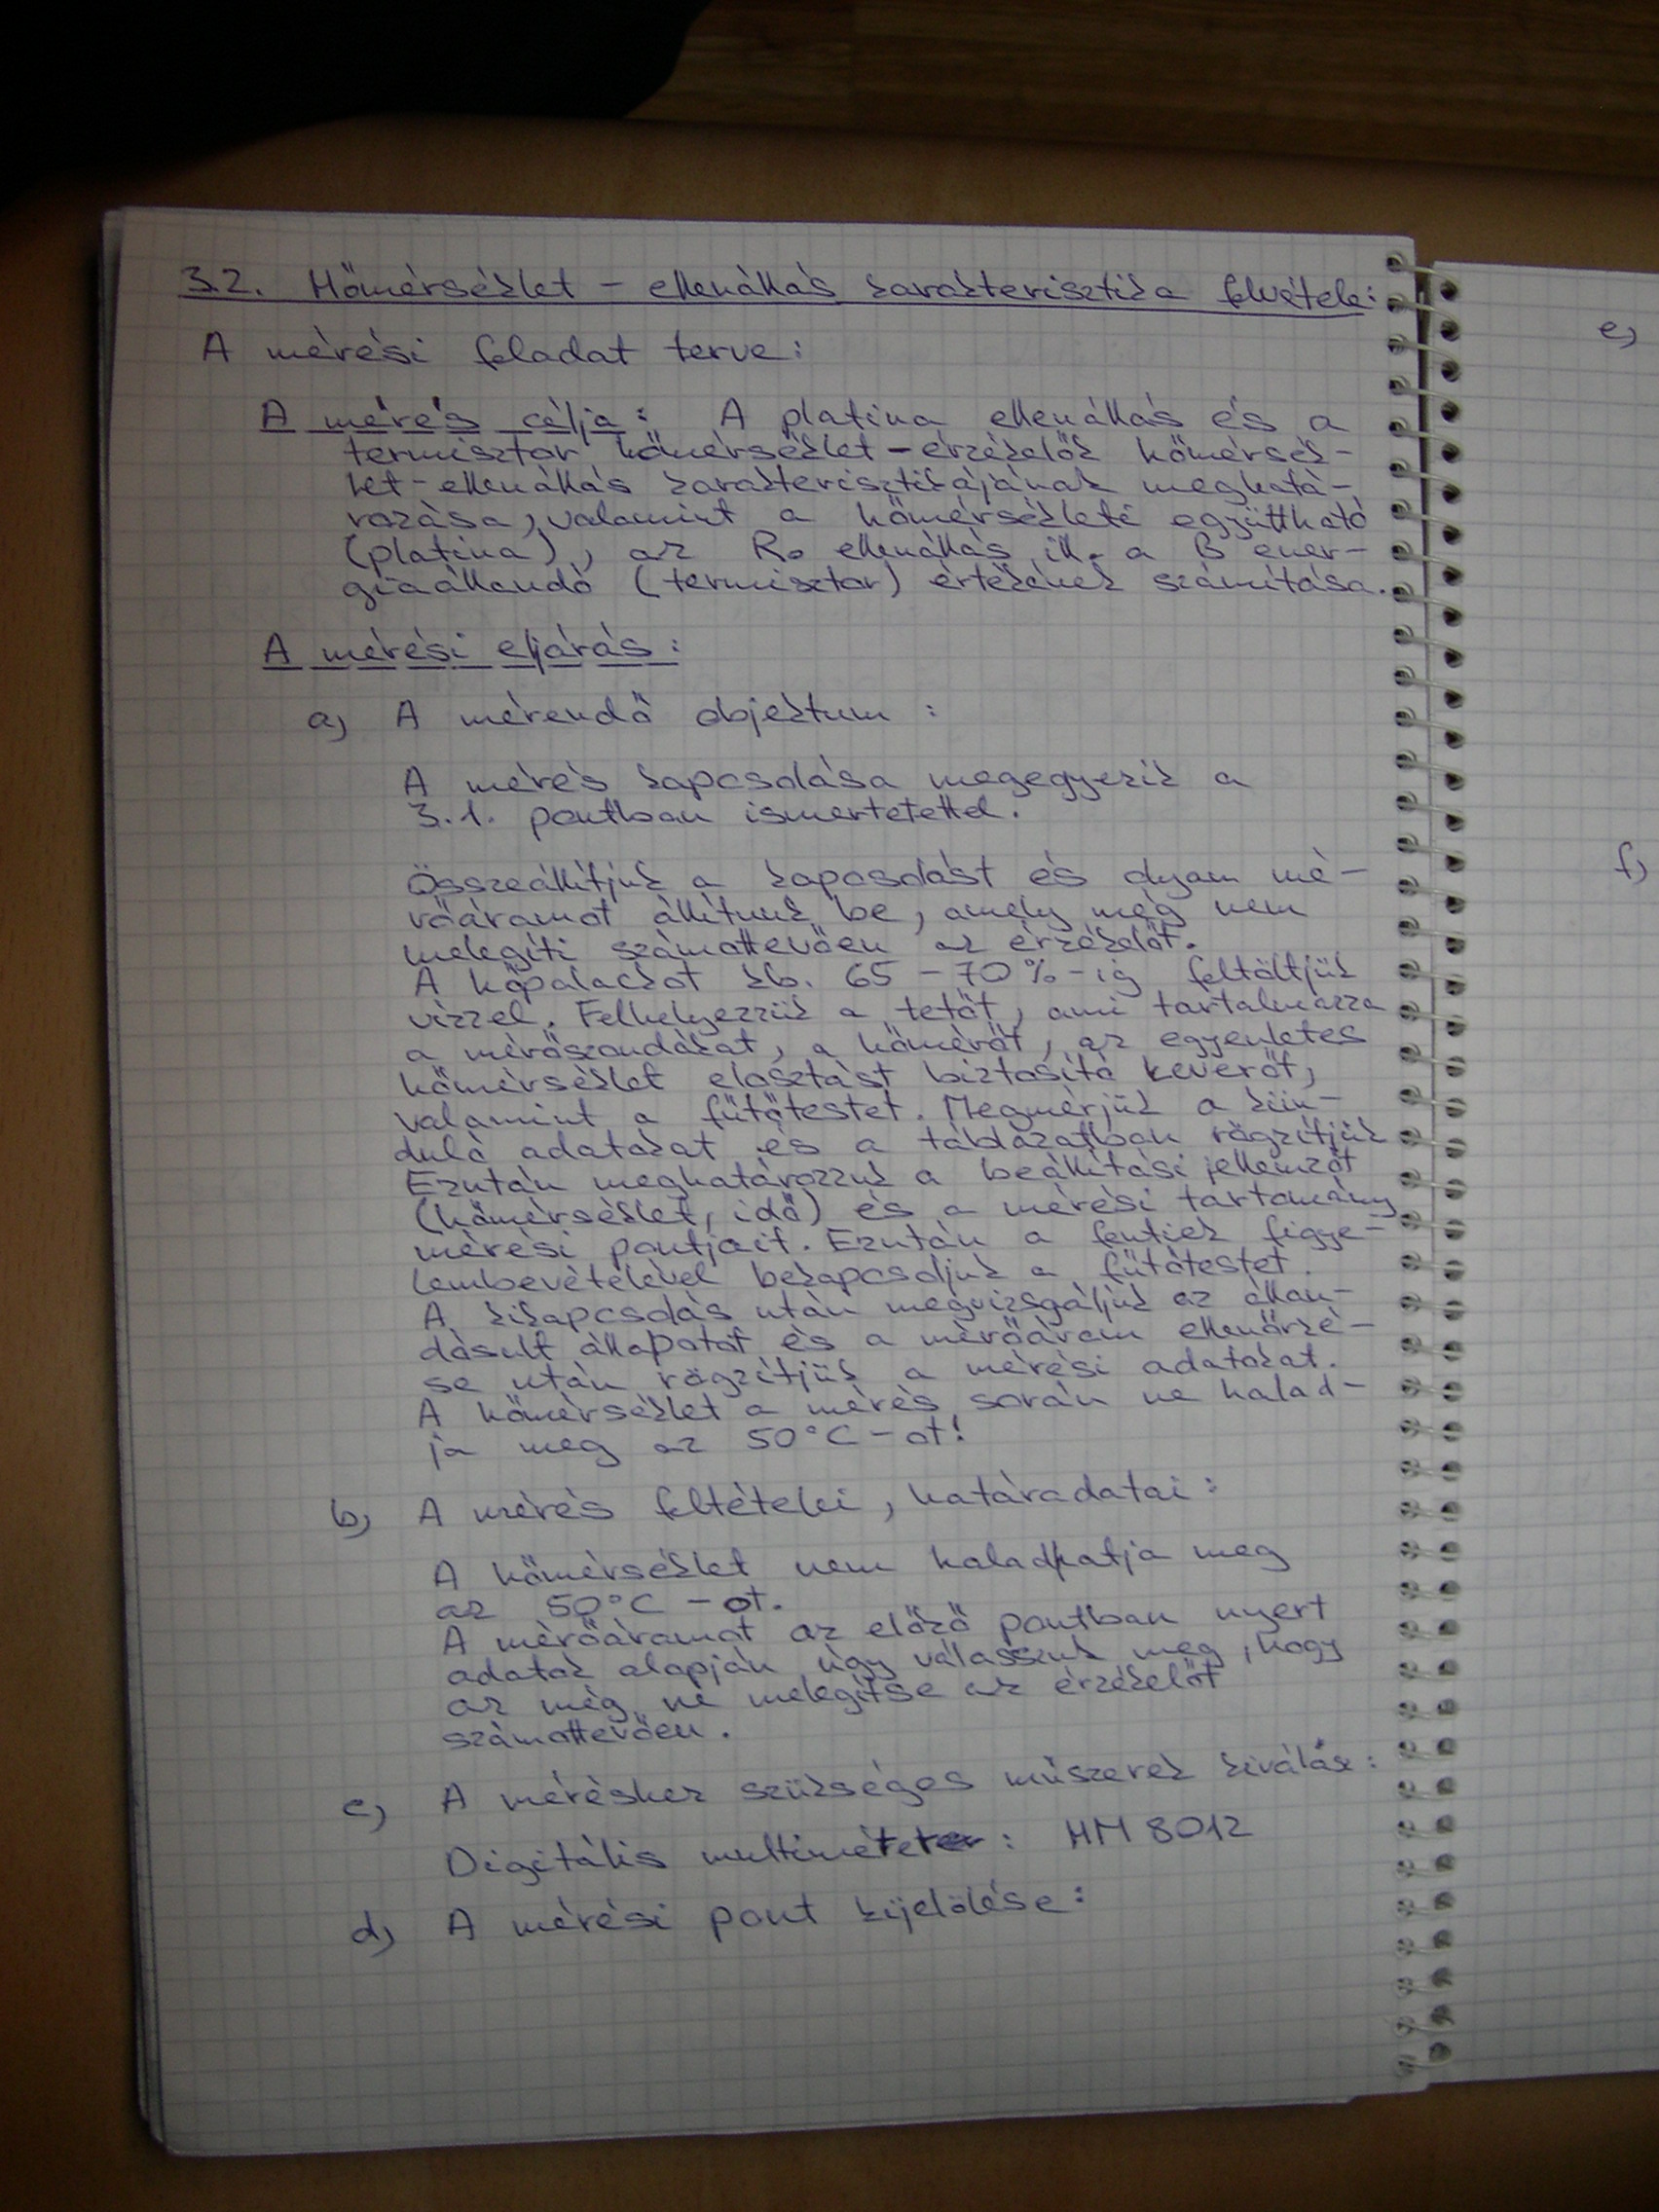 3.2. Hőmérséklet - ellenállás karakterisztika felvétele:
A mérési feladat terve:
A mérés célja: A platina ellenállás és a
termisztor hőmérséklet-érzékelők hőmérsék-
let-ellenállás karakterisztikájának meghatá-
rozása, valamint a hőmérsékleti együttható
(platina), az R₀ ellenállás ill. a B ener-
giaállandó (termisztor) értékének számítása.
A mérési eljárás:
a) A mérendő objektum:
A mérés kapcsolása megegyezik a
3.1. pontban ismertetettel.
Összeállítjuk a kapcsolást és olyan mé-
rőáramot állítunk be, amely még nem
melegíti számottevően az érzékelőt.
A hőpalackot kb. 65 - 70%-ig feltöltjük
vízzel. Felhelyezzük a tetőt, ami tartalmazza
a mérőszondákat, a hőmérőt, az egyenletes
hőmérséklet elosztást biztosító keverőt,
valamint a fűtőtestet. Megmérjük a kiin-
duló adatokat és a táblázatban rögzítjük
Ezután meghatározzuk a beállítási jellemzőt
(hőmérséklet, idő) és a mérési tartomány
mérési pontjait. Ezután a fentiek figye-
lembevételével bekapcsoljuk a fűtőtestet.
A kikapcsolás után megvizsgáljuk az állan-
dósult állapotot és a mérőáram ellenőrzé-
se után rögzítjük a mérési adatokat.
A hőmérséklet a mérés során ne halad-
ja meg az 50°C-ot!
b) A mérés feltételei, határadatai:
A hőmérséklet nem haladhatja meg
az 50°C -ot.
A mérőáramot az előző pontban nyert
adatok alapján úgy válasszuk meg, hogy
az még ne melegítse az érzékelőt
számottevően.
c) A méréshez szükséges műszerek kiválasz:
Digitális multiméter: HM 8012
d) A mérési pont kijelölése:
e)
f)